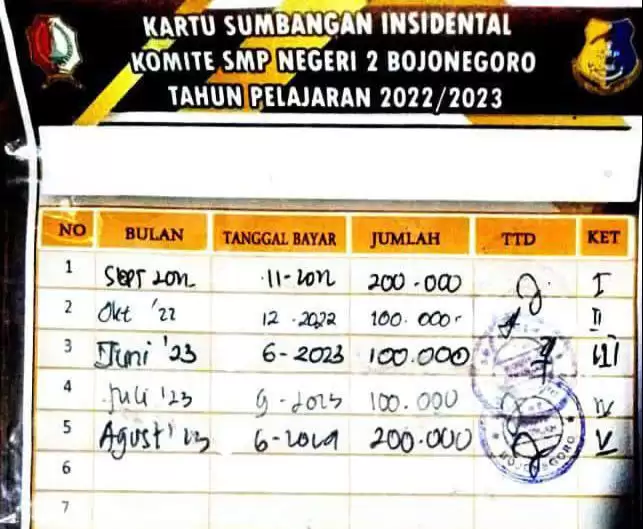 KARTU SUMBANGAN INSIDENTAL
KOMITE SMP NEGERI 2 BOJONEGORO
TAHUN PELAJARAN 2022/2023
NO BULAN TANGGAL BAYAR JUMLAH TTD KET
1 Sept 2022 11-2022 200.000 I
2 Okt '22 12-2022 100.000 II
3 Juni '23 6-2023 100.000 III
4 Juli '23 9-2023 100.000 IV
5 Agust '23 200.000 V
BOJONEGORO
6
7